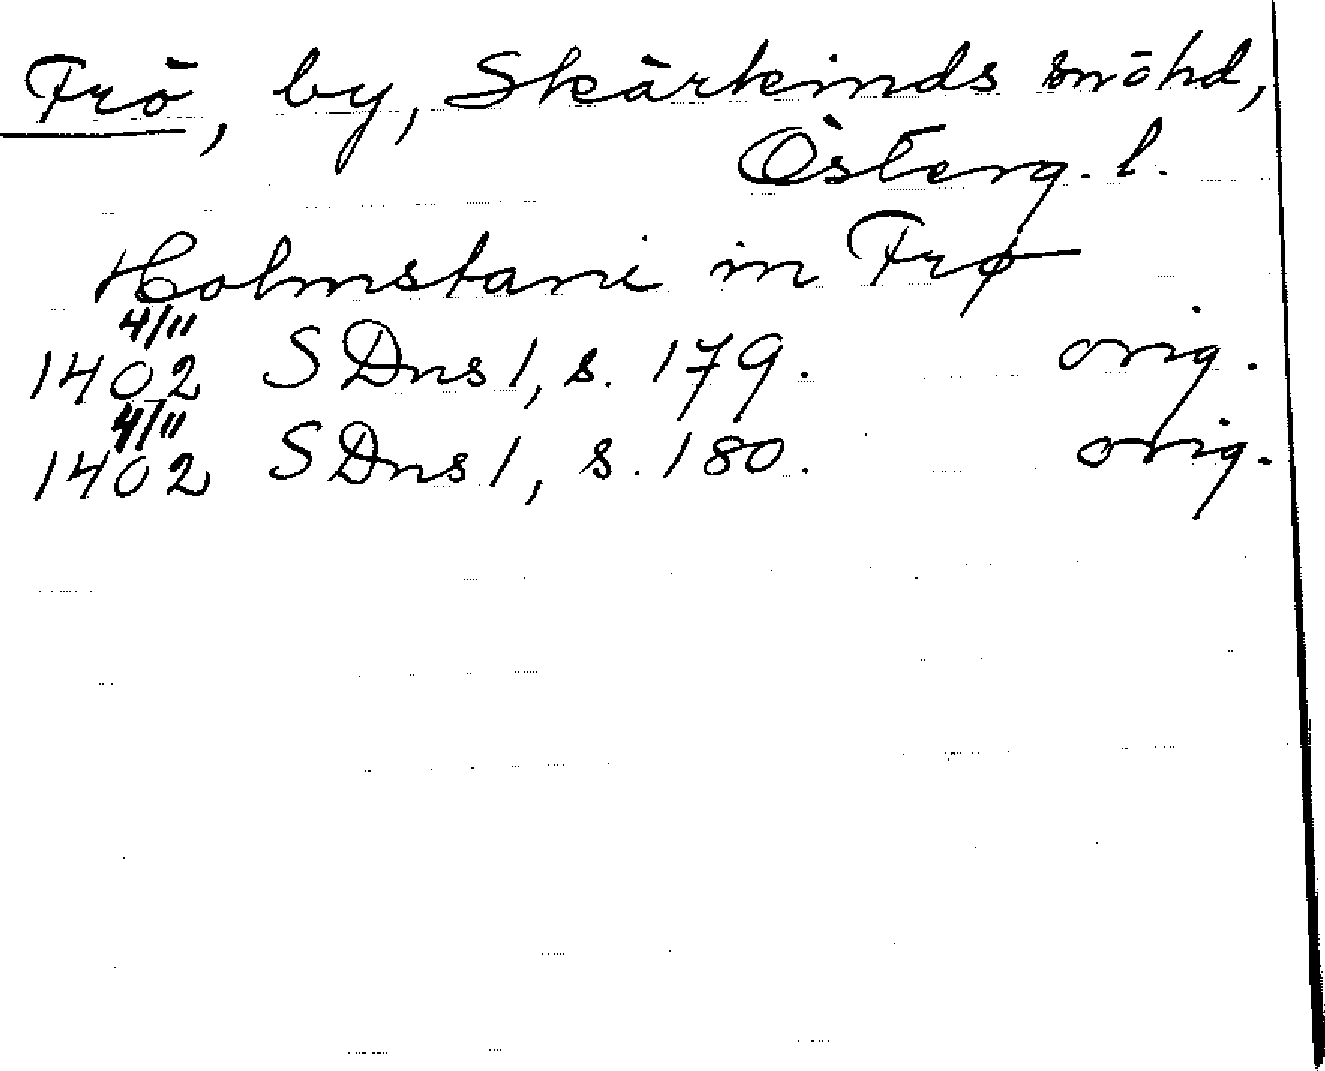 Frö, by, Skärkinds snöhd,
Österg. l.
Holmstani in Frø
4/11
1402 SDns 1, s. 179. orig.
4/11
1402 SDns 1, s. 180. orig.